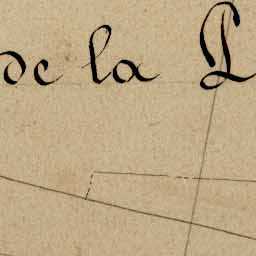 de la